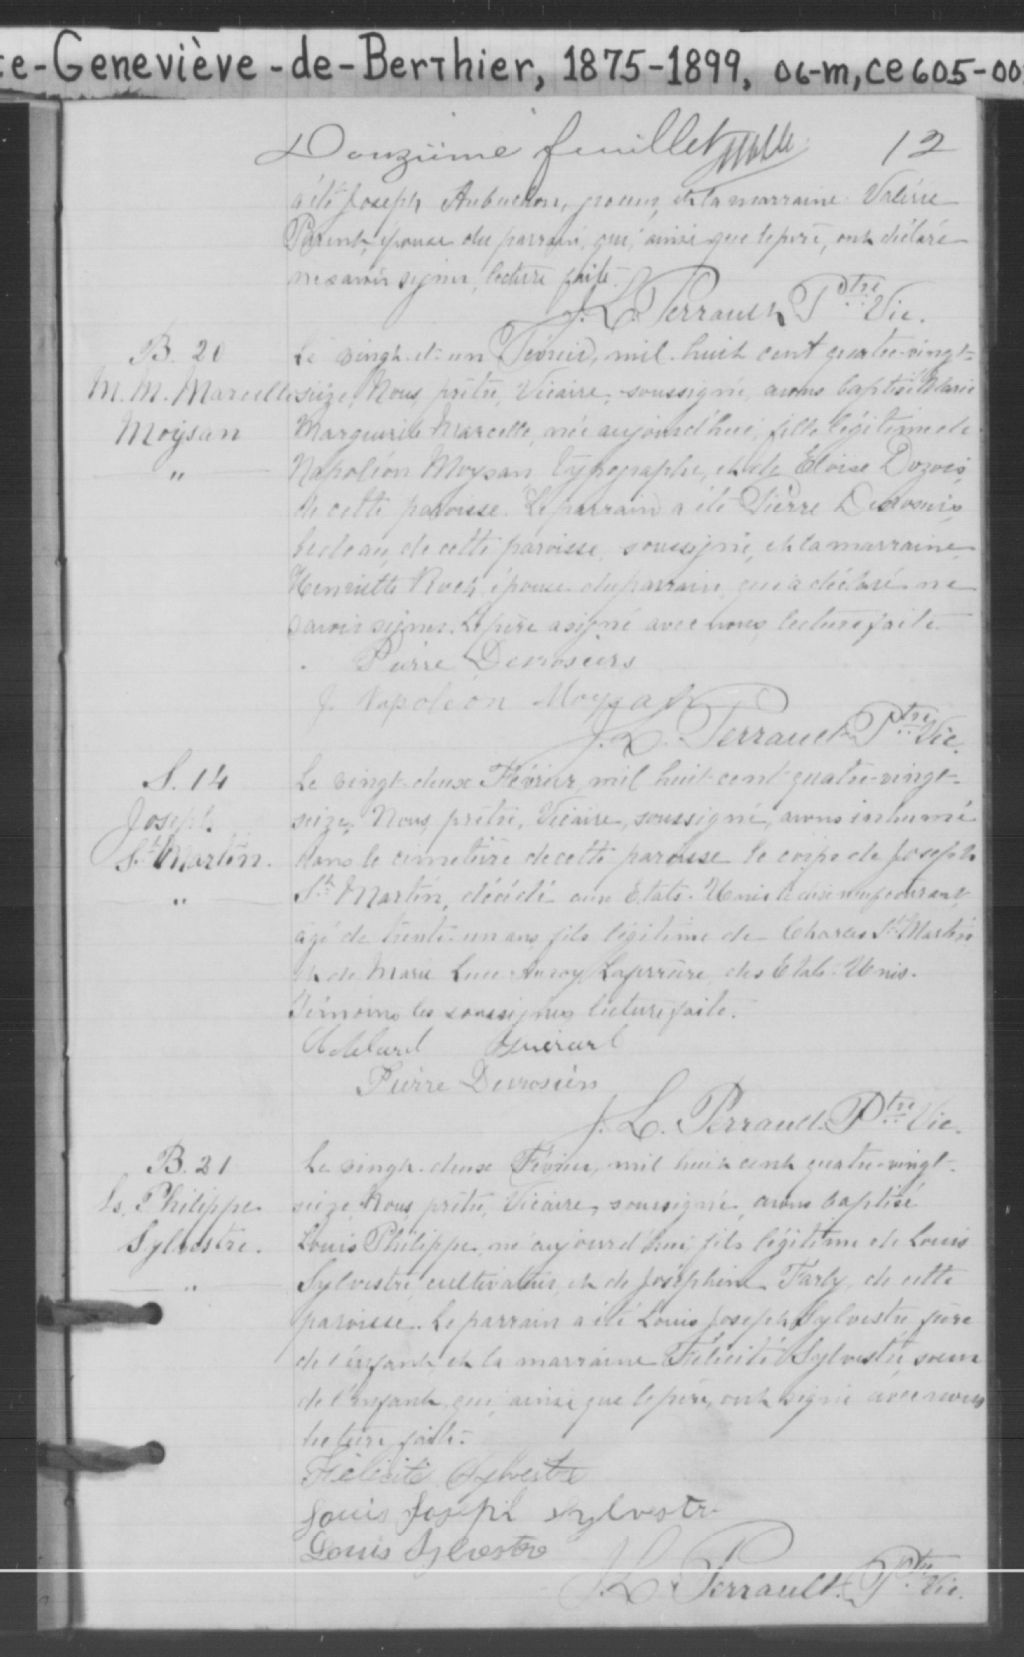 te-Geneviève-de-Berthier, 1875-1899, 06-m, ce605-00
Douzième feuillet 12
a été Joseph Aubuchon, et la marraine Valérie
Parent, épouse du parrain, qui, ainsi que le père, ont déclaré
ne savoir signer, lecture faite.
J. L. Perrault Ptre Vic.
B. 20
M. M. Marcelle
Moysan
"
Le vingt-et-un Février, mil huit cent quatre-vingt-
seize, Nous, prêtre, Vicaire, soussigné, avons baptisé Marie
Marguerite Marcelle, née aujourd'hui, fille légitime de
Napoléon Moysan typographe, et de Eloise Dozois,
de cette paroisse. Le parrain a été Pierre Desrosiers
bedeau, de cette paroisse, soussigné, et la marraine
Henriette Roch, épouse du parrain, qui a déclaré ne
savoir signer. Le père a signé avec nous, lecture faite.
Pierre Desrosiers
J. Napoléon Moysan
J. L. Perrault Ptre Vic.
S. 14
Joseph
St Martin.
"
Le vingt-deux Février, mil huit-cent-quatre-vingt-
seize, Nous, prêtre, Vicaire, soussigné, avons inhumé
dans le cimetière de cette paroisse le corps de Joseph
St Martin, décédé aux Etats-Unis le dix neuf courant
agé de trente-un ans, fils légitime de Charles St Martin
et de Marie Luce Laperrière, des Etats-Unis.
Témoins les soussignés lecture faite.
Pierre Desrosiers
J. L. Perrault Ptre Vic.
B. 21
Ls. Philippe
Sylvestre.
"
Le vingt-deux Février, mil huit cent quatre-vingt-
seize, Nous prêtre, Vicaire, soussigné, avons baptisé
Louis Philippe, né aujourd'hui, fils légitime de Louis
Sylvestre, cultivateur, et de Joséphine Farly, de cette
paroisse. Le parrain a été Louis Joseph Sylvestre frère
de l'enfant et la marraine Félicité Sylvestre, soeur
de l'enfant, qui, ainsi que le père, ont signé avec nous
lecture faite.
Félicité Sylvestre
Louis Joseph Sylvestre
Louis Sylvestre
J. L. Perrault. Ptre Vic.